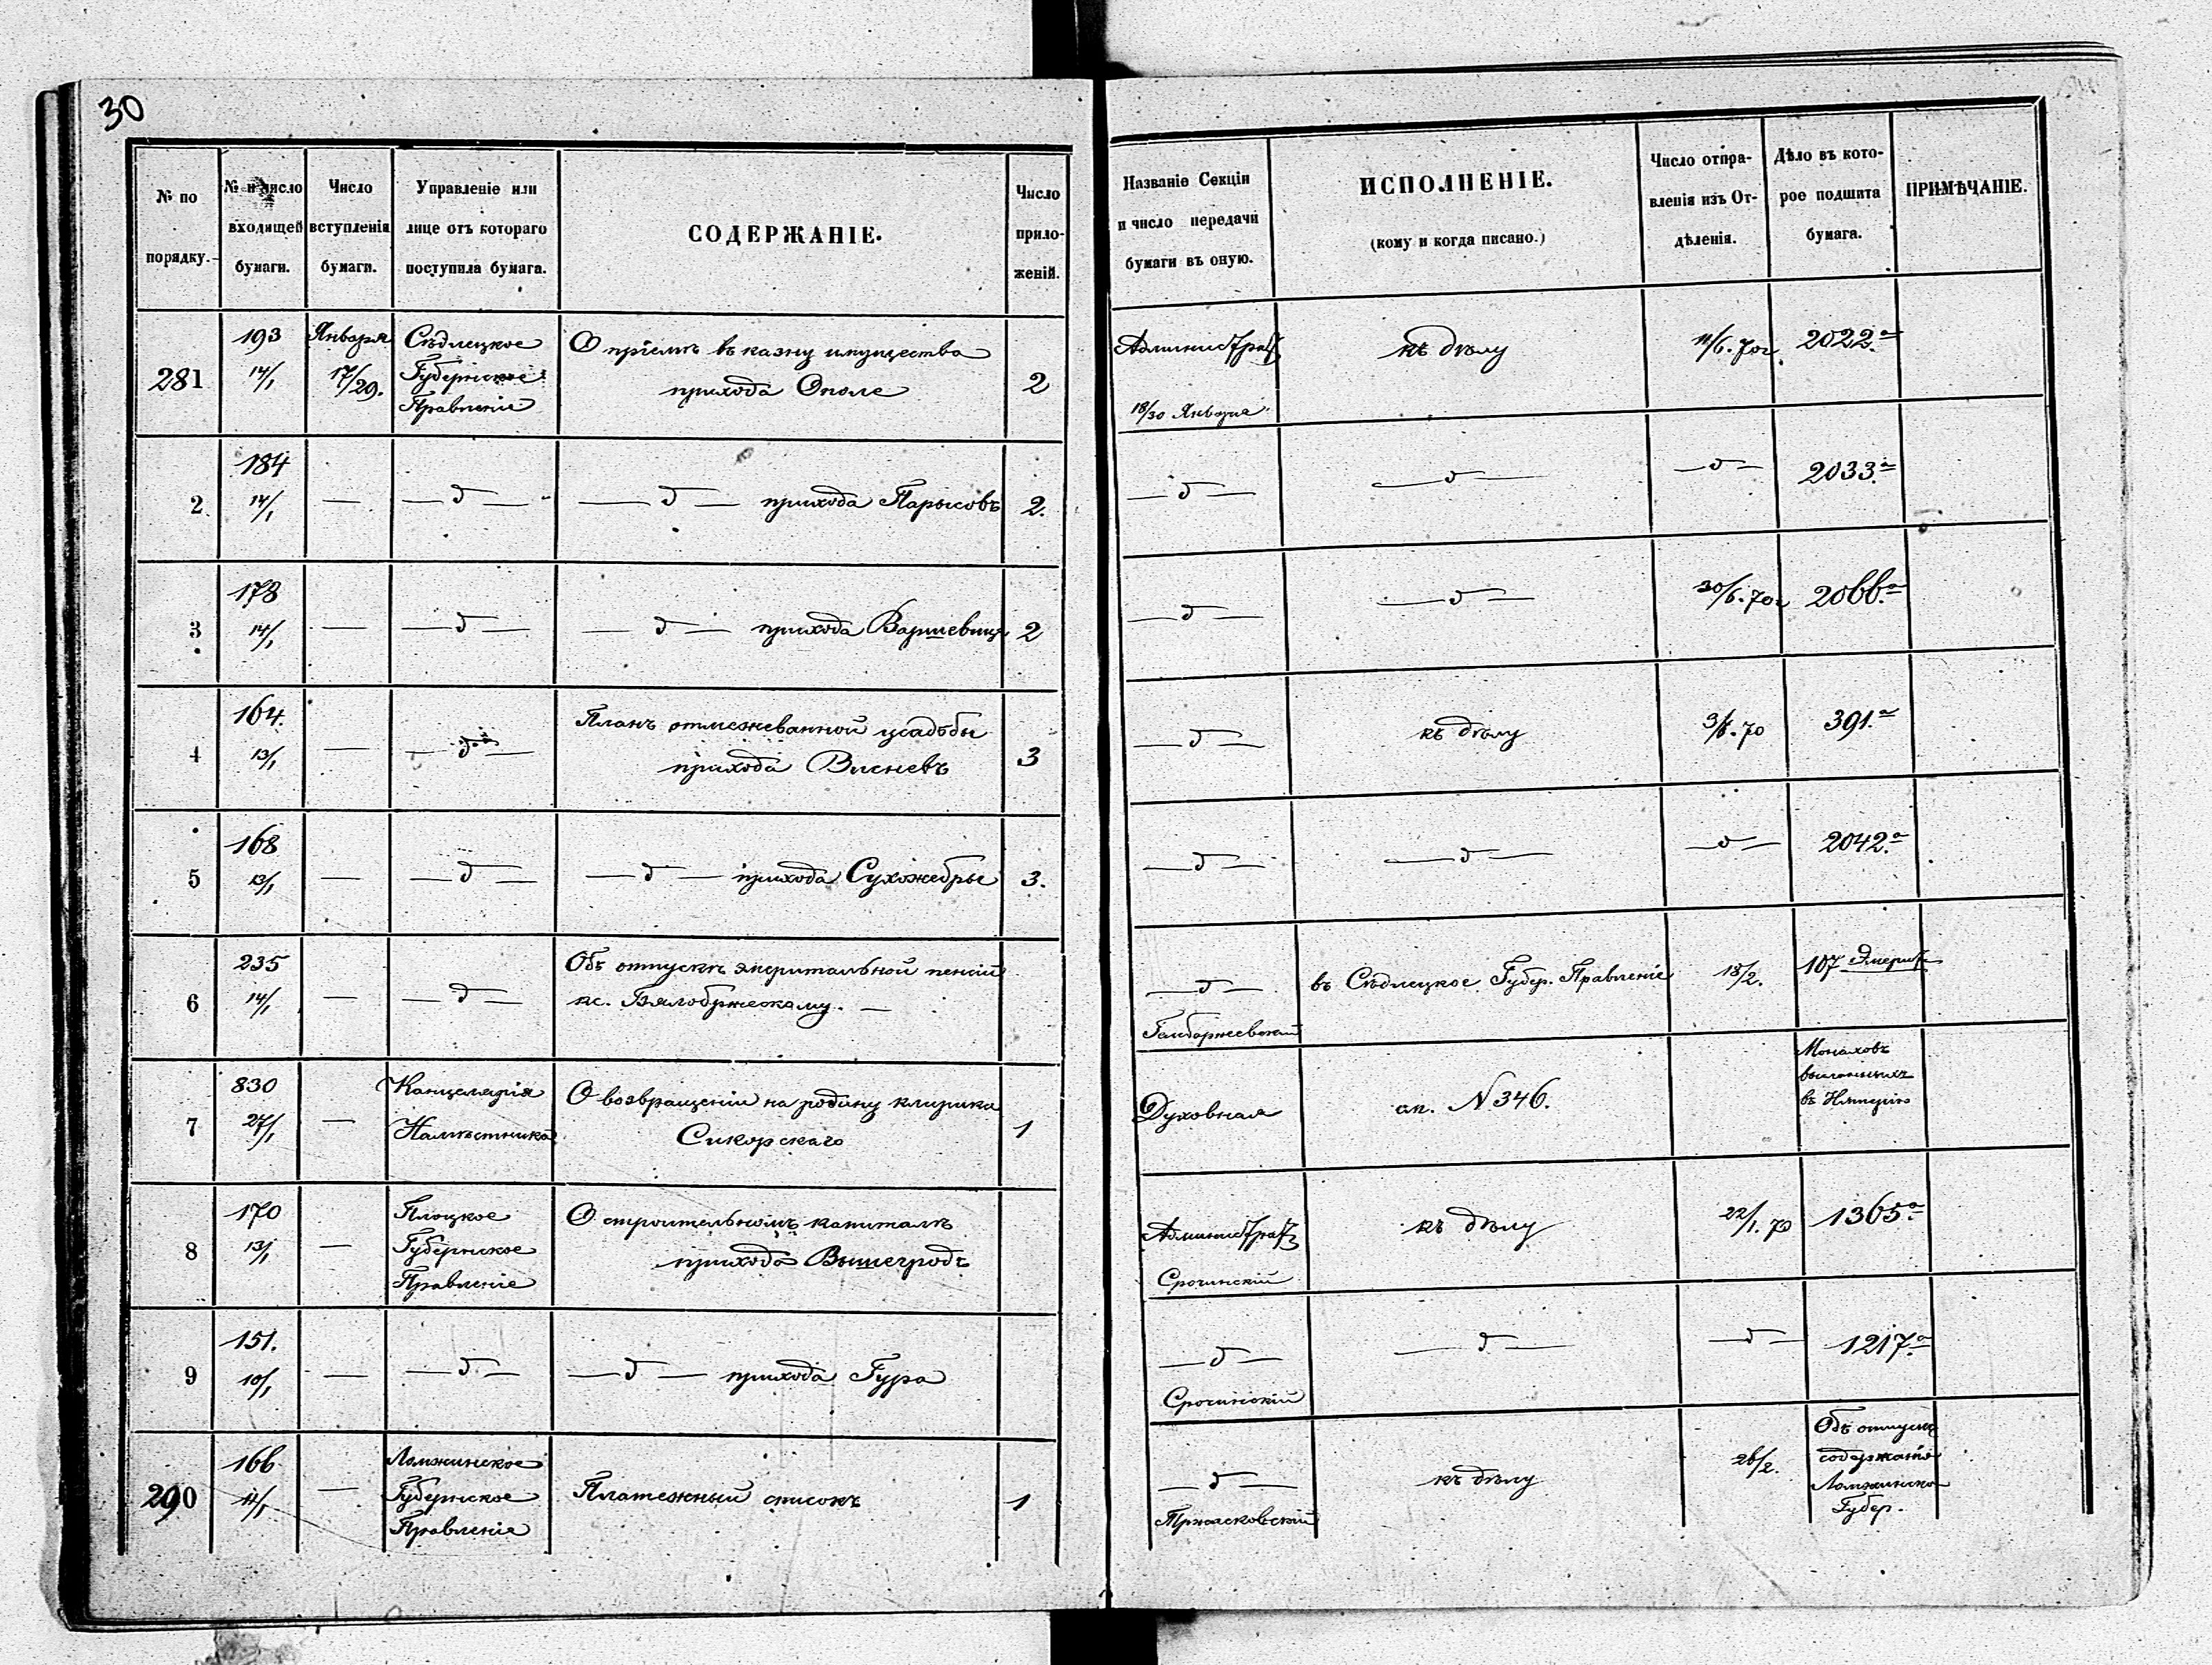 30
№ по порядку.
№ и число входящей бумаги.
Число вступленія бумаги.
Управленіе или лице отъ котораго поступила бумага.
СОДЕРЖАНІЕ.
Число приложеній.
Названіе Секціи и число передачи бумаги въ оную.
ИСПОЛНЕНІЕ.
(кому и когда писано.)
Число отправленія изъ Отдѣленія.
Дѣло въ которое подшита бумага.
ПРИМѢЧАНІЕ.
281 193 14/1 Января 17/29. Сѣдлецкое Губернское Правленіе О пріемѣ въ казну имущества прихода Ополе 2 Администрат 18/30 Января къ дѣлу 11/6. 70г. 2022.а
2 184 14/1 — —д— —д— прихода Парысовъ 2. —д— —д— —д— 2033.а
3 178 14/1 — —д— —д— прихода Варшевице 2 —д— —д— 30/6. 70г. 2066.а
4 164. 13/1 — —д— Планъ отмежеванной усадьбы прихода Висневъ 3 —д— къ дѣлу 70 391.а
5 168 13/1 — —д— —д— прихода Сухожебры 3. —д— —д— —д— 2042.а
6 235 14/1 — —д— Объ отпускѣ эмеритальной пенсіи кс. Бялобржескому. — —д— въ Сѣдлецкое Губер. Правленіе 18/2. 107 Эмерит
7 830 27/1 — Канцелярія Намѣстника О возвращеніи на родину клирика Сикорскаго 1 Духовная N 346. Монаховъ высланныхъ въ Имперію
8 170 13/1 — Плоцкое Губернское Правленіе О строительномъ капиталѣ прихода Вышегродъ Администрат Срочинскій къ дѣлу 22/1. 70 1365.а
9 151. 10/1 — —д.— —д— прихода Гура —д— Срочинскій —д— —д— 1217.а
290 166 11/1 — Ломжинское Губернское Правленіе Платежный списокъ 1 —д— Тржасковскій къ дѣлу 26/2. Объ отпускѣ содержанія Ломжинско Губер.